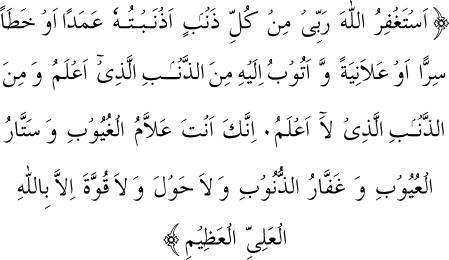 ﴿ اَسْتَغْفِرُ اللّٰهَ رَبِّىْ مِنْ كُلِّ ذَنْۢبٍ اَذْنَبْتُهٗ عَمَدًا اَوْ خَطَأً
سِرًّا اَوْ عَلَانِيَةً وَّ اَتُوْبُ اِلَيْهِ مِنَ الذَّنْۢبِ الَّذِىْٓ اَعْلَمُ وَ مِنَ
الذَّنْۢبِ الَّذِىْ لَآ اَعْلَمُ۰ اِنَّكَ اَنْتَ عَلَّامُ الْغُيُوْبِ وَ سَتَّارُ
الْعُيُوْبِ وَ غَفَّارُ الذُّنُوْبِ وَ لَا حَوْلَ وَ لَا قُوَّةَ اِلَّا بِاللّٰهِ
الْعَلِىِّ الْعَظِيْمِ ﴾